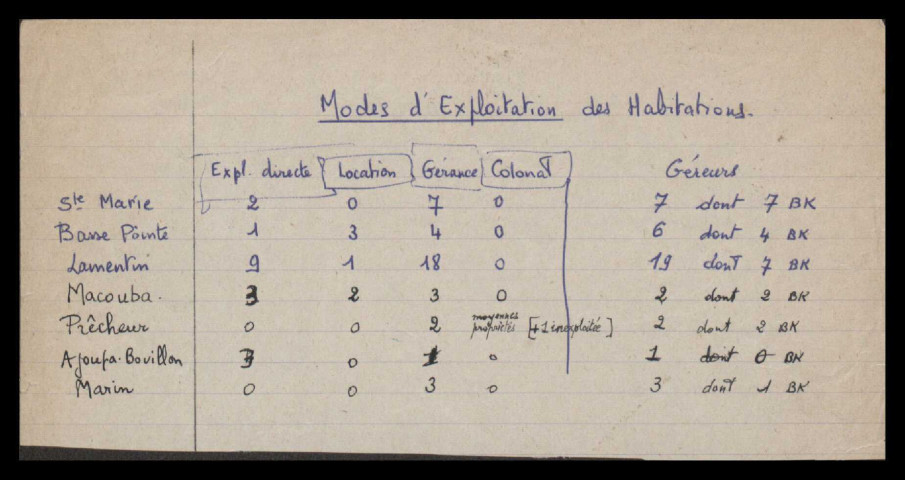 Modes d'Exploitation des Habitations.
Expl. directe Location Gérance Colonat Géreurs
Ste Marie 2 0 7 0 7 dont 7 BK
Basse Pointe 1 3 4 0 6 dont 4 BK
Lamentin 9 1 18 0 19 dont 7 BK
Macouba. 3 2 3 0 2 dont 2 BK
Prêcheur 0 0 2 moyennes propriétés [+1 inexploitée] 2 dont 2 BK
Ajoupa-Bouillon 3 0 1 0 1 dont 0 BK
Marin 0 0 3 0 3 dont 1 BK